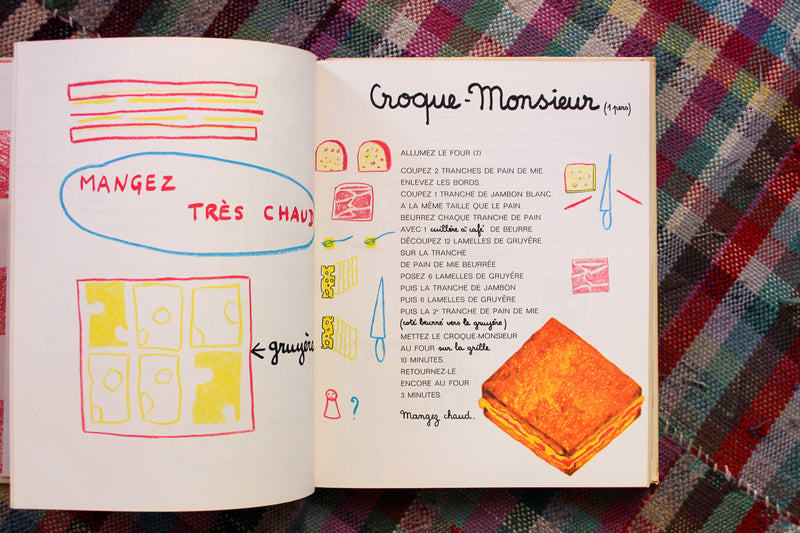 MANGEZ
TRÈS CHAUD
← gruyère
Croque-Monsieur (1 pers)
ALLUMEZ LE FOUR (7)
COUPEZ 2 TRANCHES DE PAIN DE MIE
ENLEVEZ LES BORDS.
COUPEZ 1 TRANCHE DE JAMBON BLANC
A LA MÊME TAILLE QUE LE PAIN.
BEURREZ CHAQUE TRANCHE DE PAIN
AVEC 1 cuillère à café DE BEURRE.
DÉCOUPEZ 12 LAMELLES DE GRUYÈRE.
SUR LA TRANCHE
DE PAIN DE MIE BEURRÉE
POSEZ 6 LAMELLES DE GRUYÈRE
PUIS LA TRANCHE DE JAMBON
PUIS 6 LAMELLES DE GRUYÈRE
PUIS LA 2e TRANCHE DE PAIN DE MIE
(coté beurré vers le gruyère)
METTEZ LE CROQUE-MONSIEUR
AU FOUR sur la grille
10 MINUTES.
RETOURNEZ-LE.
ENCORE AU FOUR
3 MINUTES.
Mangez chaud.
?